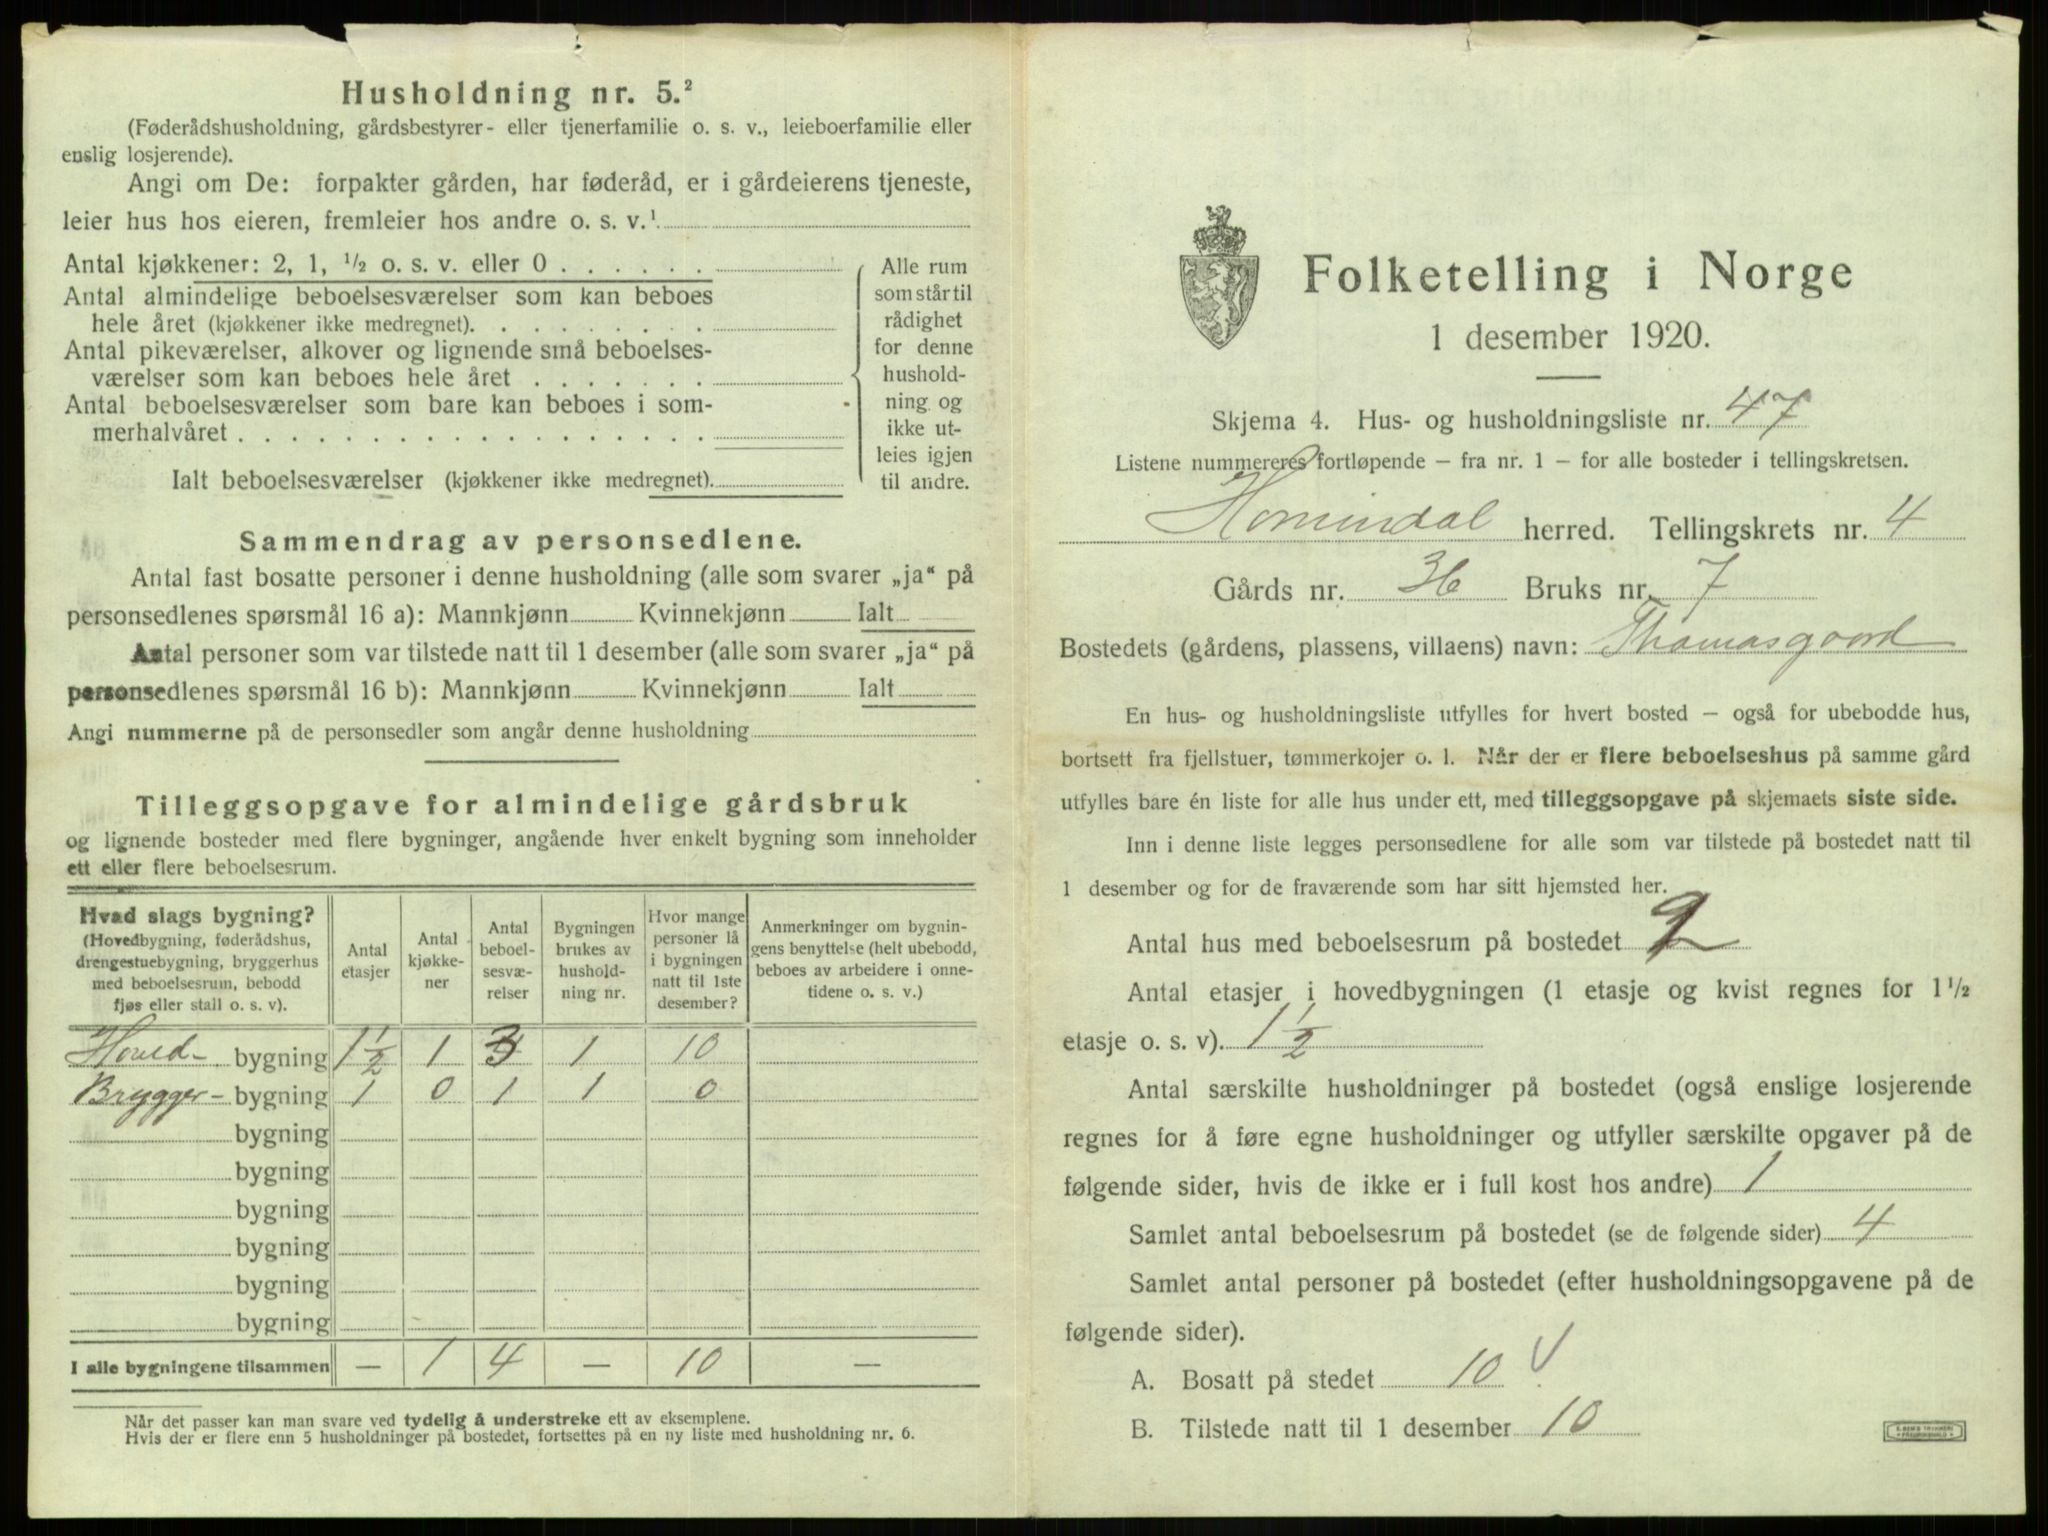 Husholdning nr. 5.²
(Føderådshusholdning, gårdsbestyrer- eller tjenerfamilie o. s. v., leieboerfamilie eller
enslig losjerende).
Angi om De: forpakter gården, har føderåd, er i gårdeierens tjeneste,
leier hus hos eieren, fremleier hos andre o. s. v.¹
Antal kjøkkener: 2, 1, ½ o. s. v. eller 0 . . . . . .
Antal almindelige beboelsesværelser som kan beboes
hele året (kjøkkener ikke medregnet). . . . . . . . .
Antal pikeværelser, alkover og lignende små beboelses-
værelser som kan beboes hele året . . . . . . .
Antal beboelsesværelser som bare kan beboes i som-
merhalvåret . . . . . . . . . . . . . . . . . .
Ialt beboelsesværelser (kjøkkener ikke medregnet).
Alle rum
som står til
rådighet
for denne
hushold-
ning og
ikke ut-
leies igjen
til andre.
Sammendrag av personsedlene.
Antal fast bosatte personer i denne husholdning (alle som svarer „ja“ på
personsedlenes spørsmål 16 a): Mannkjønn Kvinnekjønn Ialt
Antal personer som var tilstede natt til 1 desember (alle som svarer „ja“ på
personsedlenes spørsmål 16 b): Mannkjønn Kvinnekjønn Ialt
Angi nummerne på de personsedler som angår denne husholdning
Tilleggsopgave for almindelige gårdsbruk
og lignende bosteder med flere bygninger, angående hver enkelt bygning som inneholder
ett eller flere beboelsesrum.
Hvad slags bygning?
(Hovedbygning, føderådshus,
drengestuebygning, bryggerhus
med beboelsesrum, bebodd
fjøs eller stall o. s. v).
Antal
etasjer
Antal
kjøkke-
ner
Antal
beboel-
sesvæ-
relser
Bygningen
brukes av
hushold-
ning nr.
Hvor mange
personer lå
i bygningen
natt til 1ste
desember?
Anmerkninger om bygnin-
gens benyttelse (helt ubebodd,
beboes av arbeidere i onne-
tidene o. s. v.)
Hoved- bygning 1½ 1 3 1 10
Brygger- bygning 1 0 1 1 0
bygning
bygning
bygning
bygning
bygning
bygning
I alle bygningene tilsammen — 1 4 — 10 —
Når det passer kan man svare ved tydelig å understreke ett av eksemplene.
Hvis der er flere enn 5 husholdninger på bostedet, fortsettes på en ny liste med husholdning nr. 6.
Folketelling i Norge
1 desember 1920.
Skjema 4. Hus- og husholdningsliste nr. 47
Listene nummereres fortløpende – fra nr. 1 – for alle bosteder i tellingskretsen.
Hornindal herred. Tellingskrets nr. 4
Gårds nr. 36 Bruks nr. 7
Bostedets (gårdens, plassens, villaens) navn: Thomasgaard
En hus- og husholdningsliste utfylles for hvert bosted – også for ubebodde hus,
bortsett fra fjellstuer, tømmerkojer o. l. Når der er flere beboelseshus på samme gård
utfylles bare én liste for alle hus under ett, med tilleggsopgave på skjemaets siste side.
Inn i denne liste legges personsedlene for alle som var tilstede på bostedet natt til
1 desember og for de fraværende som har sitt hjemsted her.
Antal hus med beboelsesrum på bostedet 2
Antal etasjer i hovedbygningen (1 etasje og kvist regnes for 1½
etasje o. s. v). 1½
Antal særskilte husholdninger på bostedet (også enslige losjerende
regnes for å føre egne husholdninger og utfyller særskilte opgaver på de
følgende sider, hvis de ikke er i full kost hos andre) 1
Samlet antal beboelsesrum på bostedet (se de følgende sider) 4
Samlet antal personer på bostedet (efter husholdningsopgavene på de
følgende sider).
A. Bosatt på stedet 10 V
B. Tilstede natt til 1 desember 10